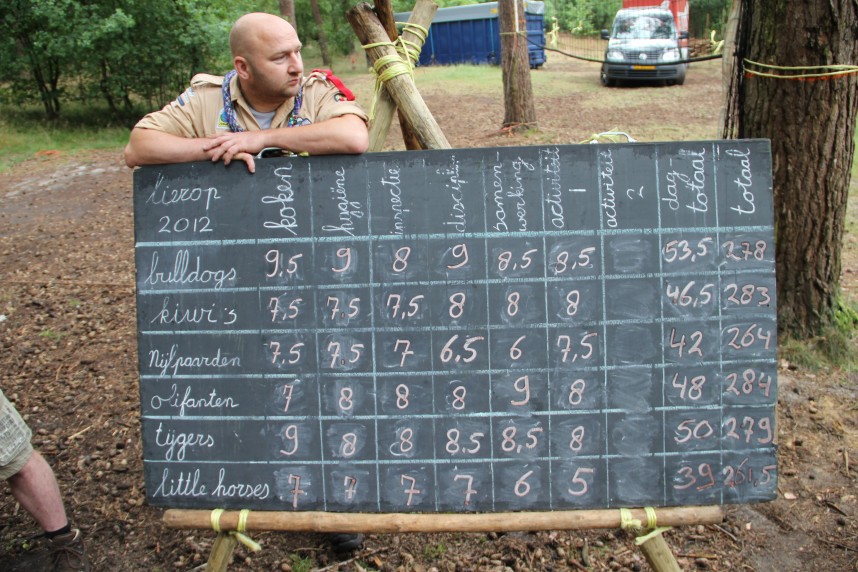 tierop koken hygiëne inspectie disciplin... samen- activiteit activiteit dag- totaal
2012 werking 1 2 totaal
bulldogs 9,5 9 8 9 8,5 8,5 53,5 278
kiwi's 7,5 7,5 7,5 8 8 8 46,5 283
Nijlpaarden 7,5 7,5 7 6,5 6 7,5 42 264
olifanten 7 8 8 8 9 8 48 284
tijgers 9 8 8 8,5 8,5 8 50 279
little horses 7 7 7 7 6 5 39 251,5